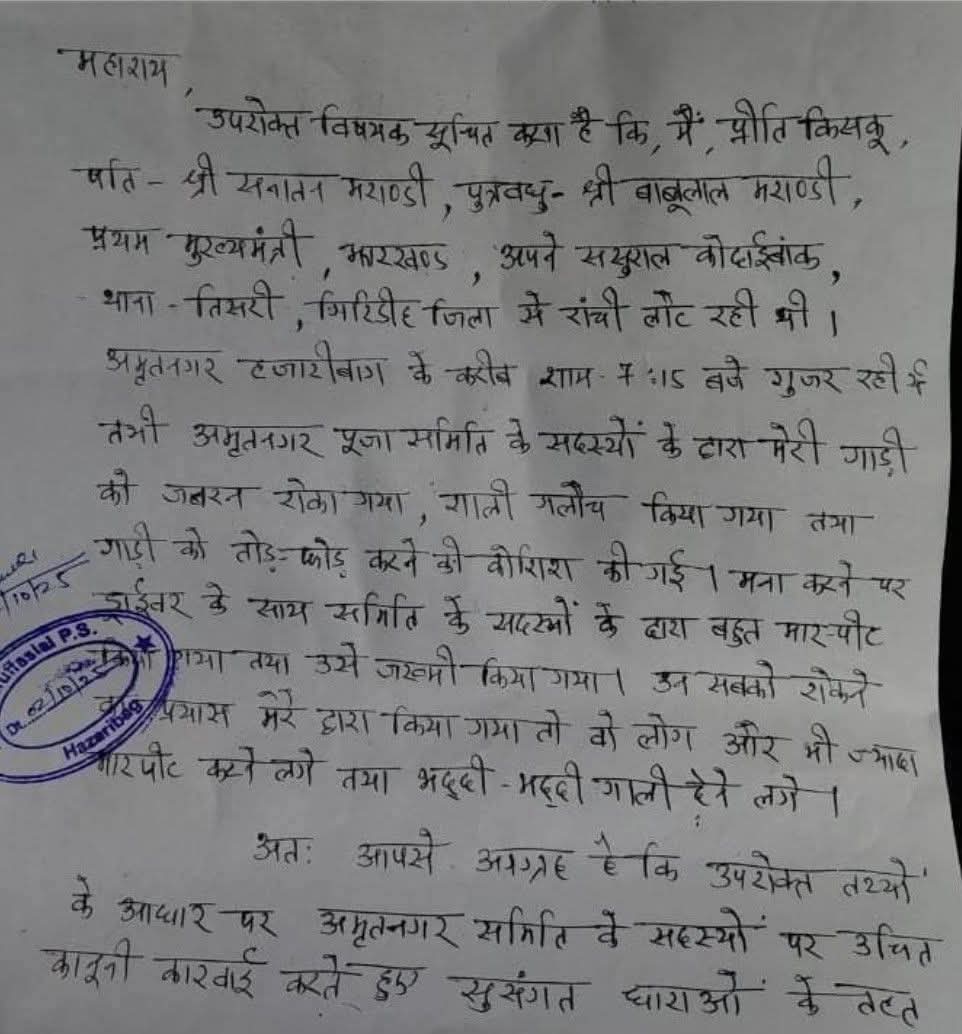 महाशय,
उपरोक्त विषयक सूचित करना है कि, मैं, प्रीति किसकू,
पति - श्री सनातन मराण्डी, पुत्रवधु - श्री बाबूलाल मराण्डी,
प्रथम मुख्यमंत्री, झारखण्ड, अपने ससुराल कोदाईबांक,
थाना - तिसरी, गिरिडीह जिला से रांची लौट रही थी।
अमृतनगर हजारीबाग के करीब शाम 7:15 बजे गुजर रही थी
तभी अमृतनगर पूजा समिति के सदस्यों के द्वारा मेरी गाड़ी
को जबरन रोका गया, गाली गलौच किया गया तथा
गाड़ी को तोड़-फोड़ करने की कोशिश की गई। मना करने पर
/10/25
ड्राईवर के साथ समिति के सदस्यों के द्वारा बहुत मार-पीट
P.S.
किया गया तथा उसे जख्मी किया गया। उन सबको रोकने
Dt. 02/10/25
का प्रयास मेरे द्वारा किया गया तो वो लोग और भी ज्यादा
Hazaribag
मारपीट करने लगे तथा भद्दी-भद्दी गाली देने लगे।
अतः आपसे आग्रह है कि उपरोक्त तथ्यों
के आधार पर अमृतनगर समिति के सदस्यों पर उचित
कानूनी कारवाई करते हुए सुसंगत धाराओं के तहत